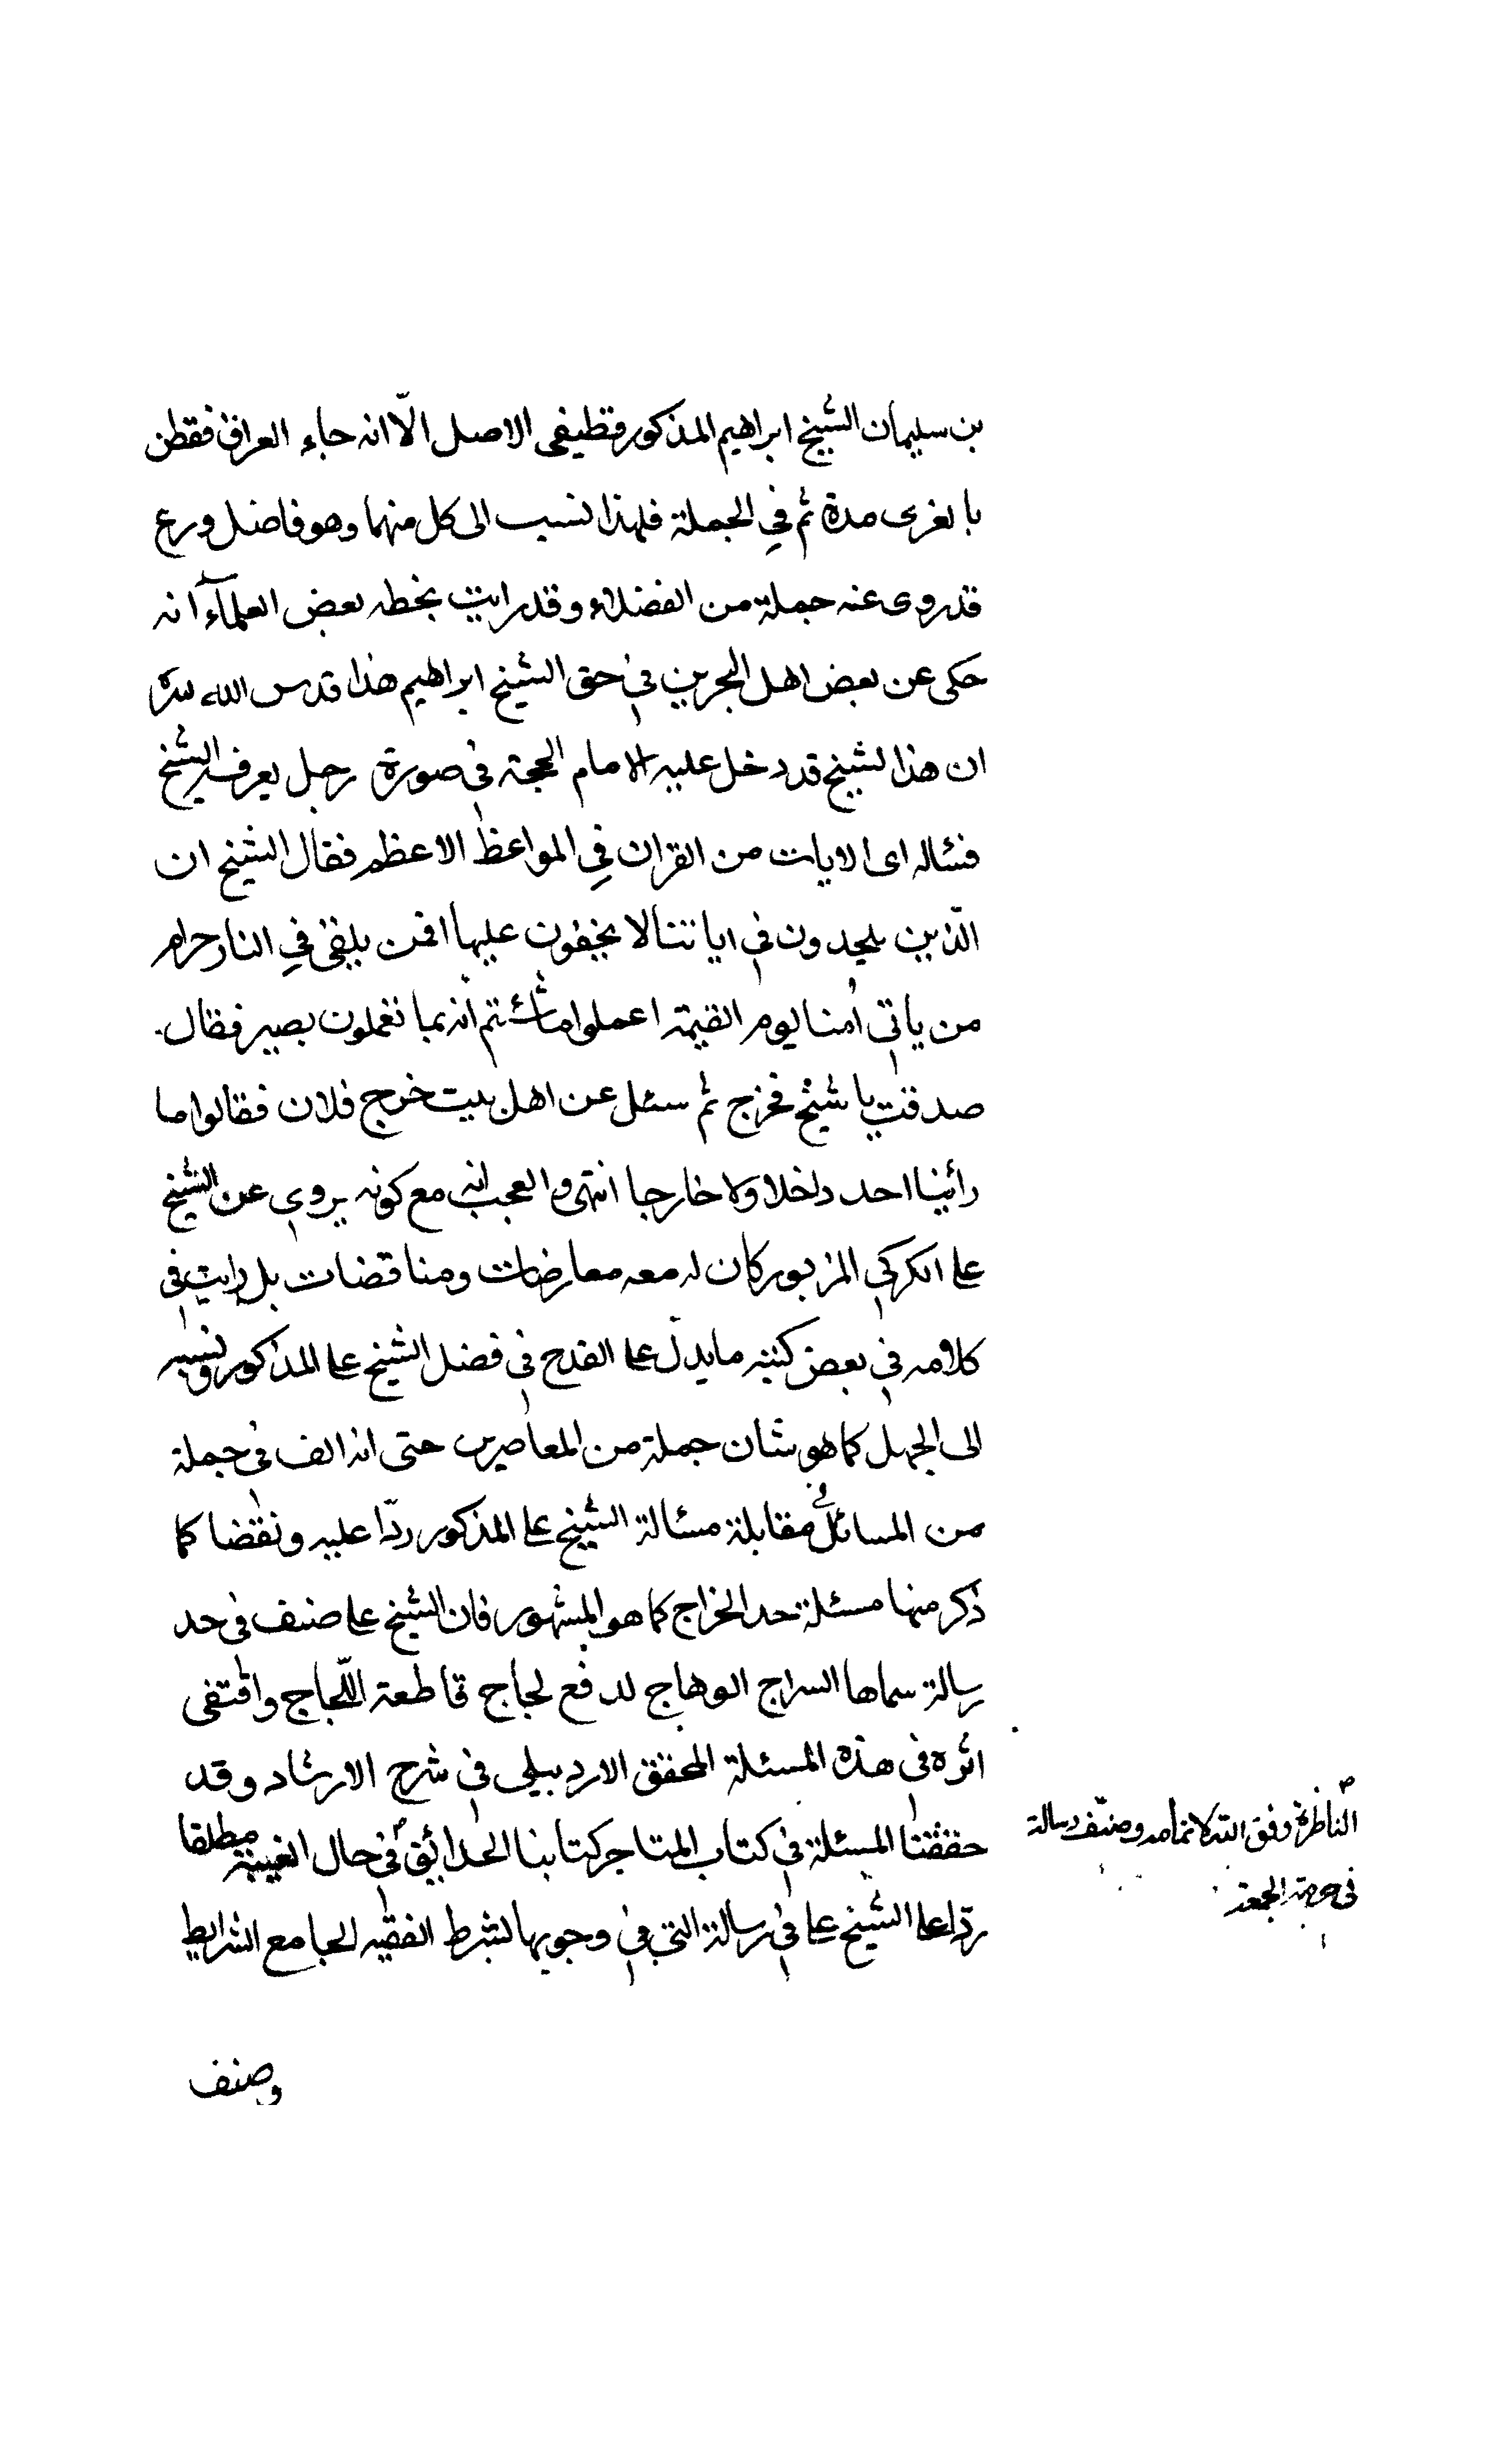 بن سليمان الشيخ ابراهيم المذكور قطيفى الاصل الّا انه جاء العراق فقطن
بالغرى مدة ثم في الجملة فلهذا نسب الى كل منهما وهو فاضل ورع
قد روى عنه جملة من الفضلاء وقد رايت بخطه بعض العلمآء انه
حكى عن بعض اهل البحرين في حق الشيخ ابراهيم هذا قدس الله سره
ان هذا الشيخ قد دخل عليه الامام الحجة في صورة رجل يعرفه الشيخ
فسئاله اى الايات من القران في المواعظ الاعظم فقال الشيخ ان
الّذين يلحدون في اياتنا لا يخفون عليها افمن يلقى في النار حرام
من ياتى امنا يوم القيمة اعملوا ما شئتم انه بما تعملون بصير فقال
صدقت يا شيخ فخرج ثم سئل عن اهل بيت خرج فلان فقالوا ما
رأينا احد داخلا ولا خارجا انتهى والعجب انه مع كونه يروى عن الشيخ
على الكركي المزبور كان له معه معارضات ومناقضات بل رايت في
كلامه في بعض كتبه ما يدل على القدح في فضل الشيخ على المذكور ونسبه
الى الجهل كما هو شان جملة من المعاصرين حتى انه الف في جملة
من المسائل في مقابلة مسئالة الشيخ على المذكور ردّا عليه ونقضا كما
ذكر منها مسئلة حد الخراج كما هو المشهور فان الشيخ على صنف في حد
رسالة سماها السراج الوهاج لدفع لجاج قاطعة اللّجاج واقتفى
اثره في هذه المسئلة المحقق الاردبيلى في شرح الارشاد وقد
حققنا المسئلة في كتاب المتاجر كتابنا الحدائق في حال الغيبة مطلقا
ردّا على الشيخ على في رسالة التي في وجوبها بشرط الفقيه الجامع الشرايط
الناظرة وفق الله لاتمامه وصنّف رسالة
في حرمة الجمعة
وصنف